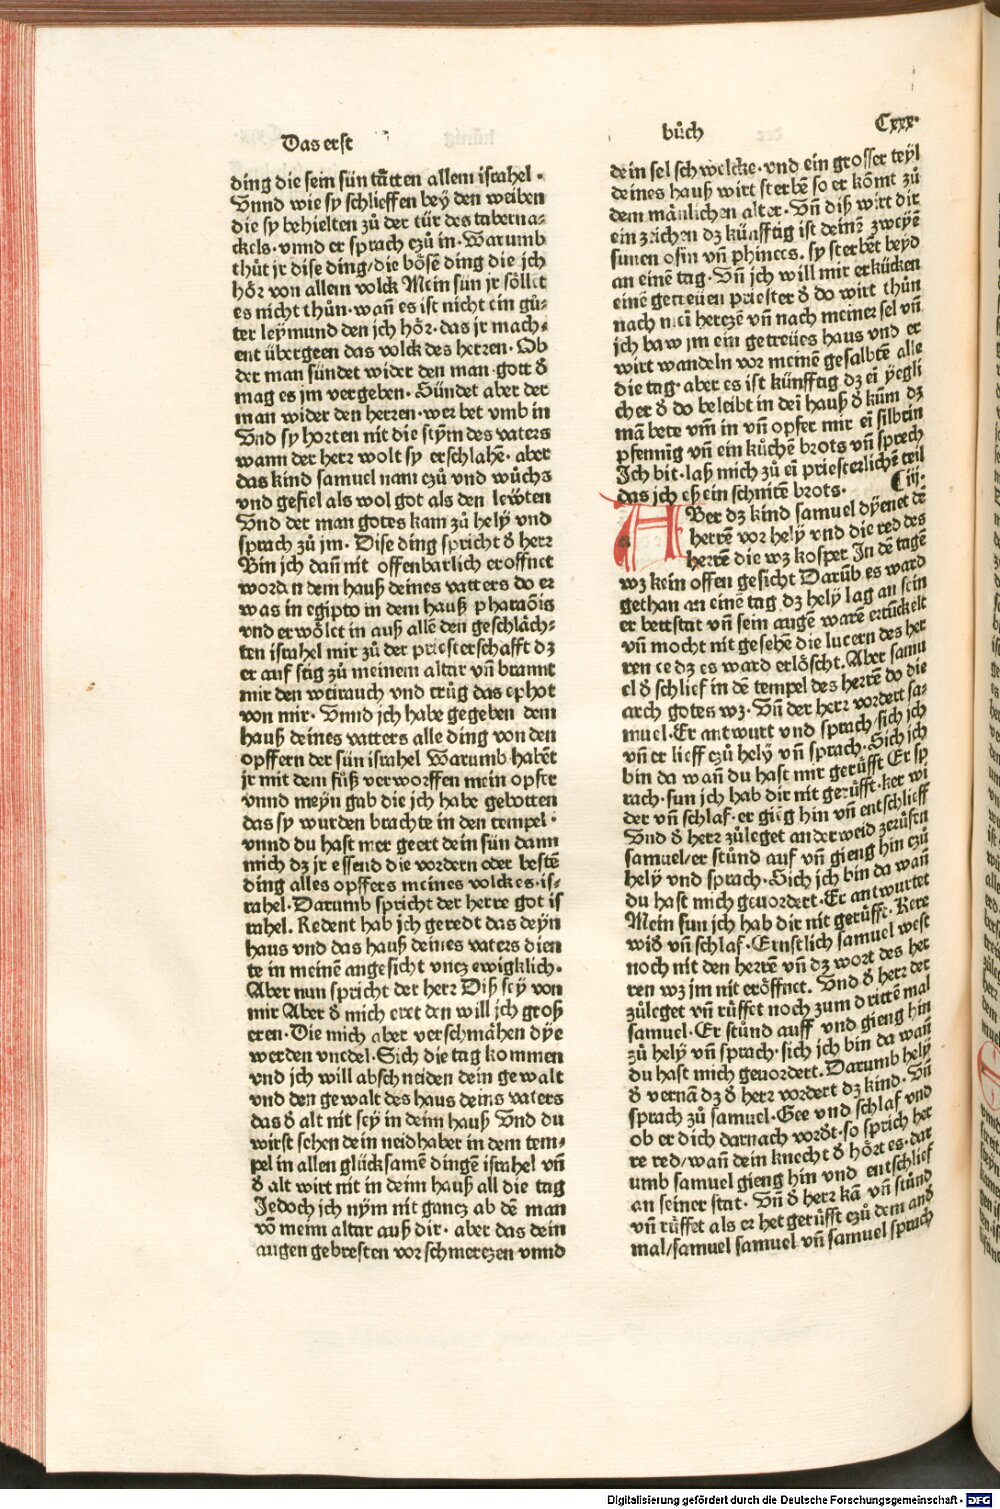 Das erst
bůch
Cxxx·
ding die sein sün tåtten allem israhel·
Vnnd wie sy schlieffen beÿ den weiben
die sy behielten zů der tür des taberna⸗
ckels·vnnd er sprach czů in·Warumb
thůt jr dise ding/die bősẽ ding die jch
hőr von allem volck Mein sün jr sőllet
es nicht thůn·wañ es ist nicht ein gů⸗
ter leÿmund den jch hőr·das jr mach⸗
ent übergeen das volck des herren·Ob
der man sündet wider den man·gott d̕
mag es jm vergeben·Sündet aber der
man wider den herren·wer bet vmb in
Vnd sy horten nit die stym̃ des vaters
wann der herr wolt sy erschlahẽ·aber
das kind samuel nam czů vnd wůchs
vnd gefiel als wol got als den lewten
Vnd der man gotes kam zů helÿ vnd
sprach zů jm·Dise ding spricht d̕ herr
Bin jch dañ nit offenbarlich eroffnet
worden dem hauß deines vatters do er
was in egipto in dem hauß pharaőis
vnd erwőlet in auß allẽ den geschlåch⸗
ten israhel mir zů der priesterschafft dz
er auf stig zů meinem altar vñ brannt
mir den weirauch vnd trůg das ephot
von mir·Vnnd jch habe gegeben dem
hauß deines vatters alle ding von den
opffern der sün israhel Warumb habẽt
jr mit dem fůß verworffen mein opfer
vnnd meÿn gab die jch habe gebotten
das sy wurden brachte in den tempel·
vnnd du hast mer geert dein sün dann
mich dz jr essend die vordern oder bestẽ
ding alles opffers meines volckes·is⸗
rahel·Darumb spricht der herre got is
rahel. Redent hab jch geredt das deÿn
haus vnd das hauß deines vaters dien
te in meinẽ angesicht vncz ewigklich·
Aber nun spricht der herr Diß seÿ von
mir Aber d̕ mich eret den will jch groß
eren·Die mich aber verschmåhen dÿe
werden vnedel·Sich die tag kommen
vnd jch will abschneiden dein gewalt
vnd den gewalt des haus deins vaters
das d̕ alt nit seÿ in deim hauß Vnd du
wirst sehen dein neidhaber in dem tem⸗
pel in allen glücksamẽ dingẽ israhel vñ
d̕ alt wirt nit in deim hauß all die tag
Jedoch jch nÿm nit gancz ab dẽ man
võ meim altar auß dir·aber das dein
augen gebresten vor schmerczen vnnd
dein sel schwelcke·vnd ein grosser teÿl
deines hauß wirt sterbẽ so er kőmt zů
dem månlichen alter·Vñ diß wirt dir
ein zeichen dz künfftig ist deinẽ zweÿẽ
sunen ofin vñ phinees. sy sterbẽt beyd
an einẽ tag·Vñ jch will mir erkücken
einẽ getreüen priester d̕ do wirt thůn
nach mei herczẽ vñ nach meiner sel vñ
jch baw jm ein getreües haus vnd er
wirt wandeln vor meinẽ gesalbtẽ alle
die tag·aber es ist künfftig dz eĩ ÿegli
cher d̕ do beleibt in deĩ hauß d̕ kům dz
mã bete vm̃ in vñ opfer mir eĩ silbrin
pfennig vñ ein kůchẽ brots vñ sprech
Jch bit·laß mich zů eĩ priesterlichẽ teil
das jch eß ein schnitẽ brots· C iij·
ABer dz kind samuel dÿenet dẽ
herrẽ vor helÿ vnd die red des
herrẽ die wz kosper In dẽ tagẽ
wz kein offen gesicht Darũb es ward
gethan an einẽ tag dz helÿ lag an sein
er bettstat vñ sein augẽ warẽ ertückelt
vñ mocht nit gesehẽ die lucern des her
ren ee dz es ward erlőscht. Aber samu
el d̕ schlief in dẽ tempel des herrẽ do die
arch gotes wz·Vñ der herr vordert sa⸗
muel·Er antwurt vnd sprach/sich jch
vñ er lieff czů helÿ vñ sprach·Sich jch
bin da wañ du hast mir gerůfft Er sp
rach·sun jch hab dir nit gerůfft·ker wi
der vñ schlaf·er gieg hin vñ entschlieff
Vnd d̕ herr zůleget anderweid zerůfen
samuel/er stůnd auf vñ gieng hin czů
helÿ vnd sprach·Sich jch bin da wañ
du hast mich geuordert·Er antwurtet
Mein sun jch hab dir nit gerůfft. Kere
wid̕ vñ schlaf·Ernstlich samuel west
noch nit den herrẽ vñ dz wort des her
ren wz jm nit erőffnet. Vnd d̕ herr der
zůleget vñ rüffet noch zum dritten mal
samuel·Er stůnd auff vnd gieng hin
zů helÿ vñ sprach·sich jch bin da wañ
du hast mich geuordert. Darumb helÿ
d̕ vernã dz d̕ herr vordert dz kind·Vñ
sprach zů samuel·Gee vnd schlaf vnd
ob er dich darnach vord̕t·so sprich her
re red/wañ dein knecht d̕ hőrt es·dar
umb samuel gieng hin vnd entschlief
an seiner stat·Vñ d̕ herr kã vñ stůnd
vñ rüffet als er het gerůfft czů dem and̕
mal/samuel samuel vñ samuel sprach
Digitalisierung gefördert durch die Deutsche Forschungsgemeinschaft - DFG